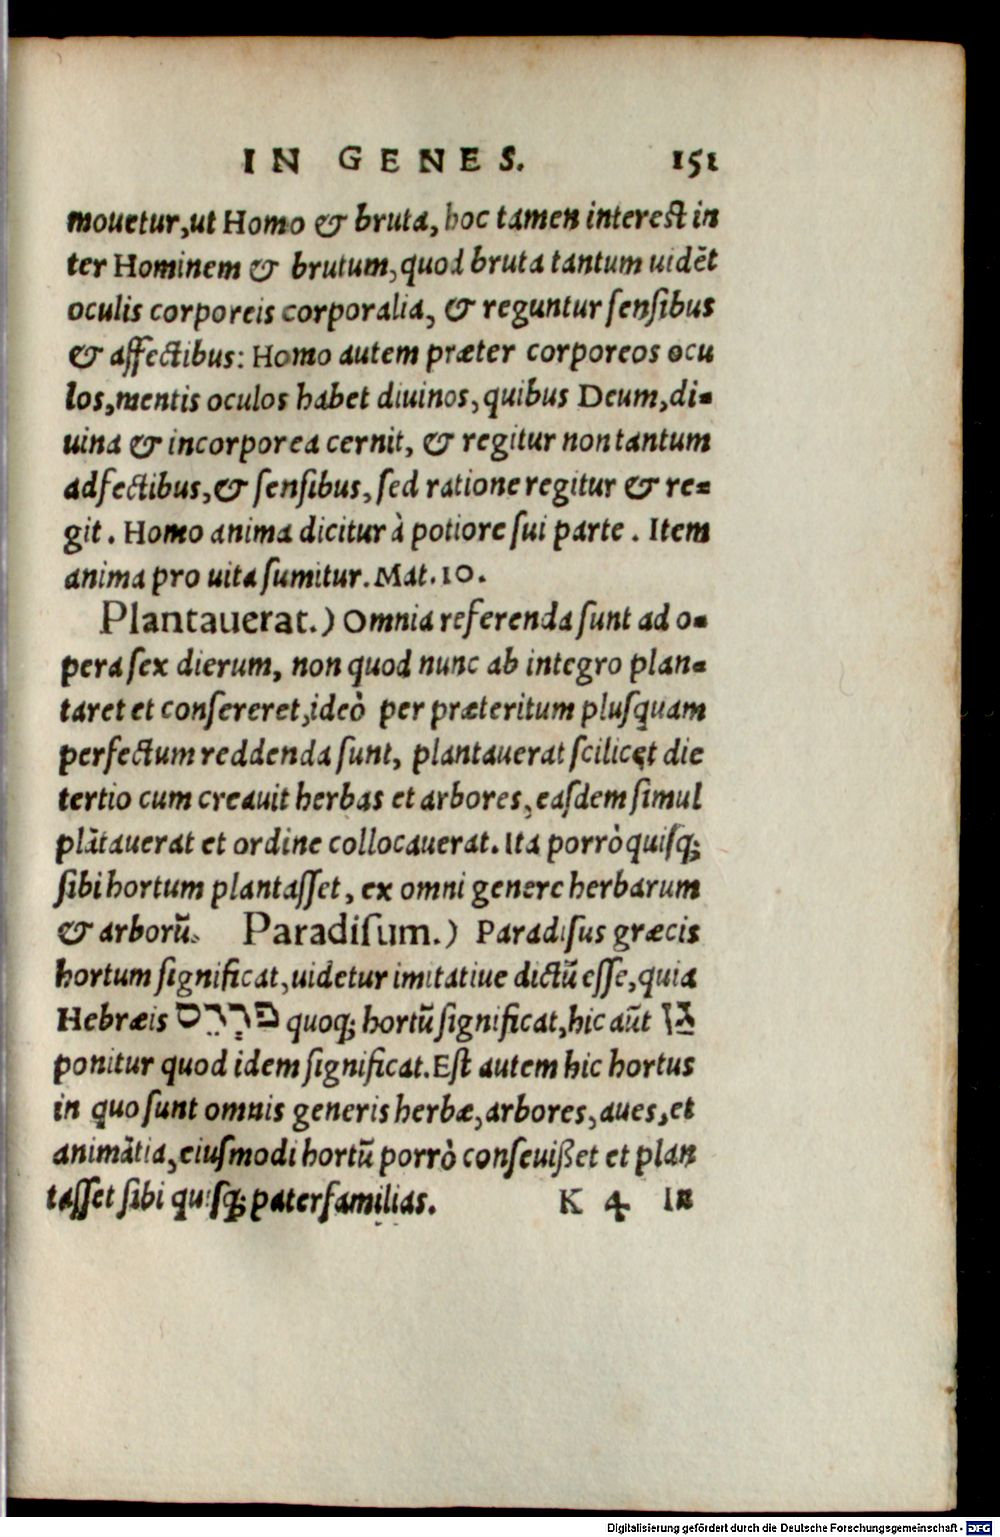 IN GENES. 151
mouetur,ut Homo & bruta, hoc tamen interest in
ter Hominem & brutum,quod bruta tantum uidẽt
oculis corporeis corporalia, & reguntur sensibus
& affectibus: Homo autem præter corporeos ocu
los,mentis oculos habet diuinos, quibus Deum,di-
uina & incorporea cernit, & regitur non tantum
adfectibus,& sensibus, sed ratione regitur & re-
git. Homo anima dicitur à potiore sui parte. Item
anima pro uita sumitur. Mat.10.
Plantauerat.) Omnia referenda sunt ad o-
pera sex dierum, non quod nunc ab integro plan-
taret et consereret,ideò per præteritum plusquam
perfectum reddenda sunt, plantauerat scilicet die
tertio cum creauit herbas et arbores, easdem simul
plãtauerat et ordine collocauerat. Ita porrò quisq;
sibi hortum plantasset, ex omni genere herbarum
& arborũ. Paradisum.) Paradisus græcis
hortum significat,uidetur imitatiue dictũ esse,quia
Hebræis פרדס quoq; hortũ significat,hic aũt גן
ponitur quod idem significat. Est autem hic hortus
in quo sunt omnis generis herbæ,arbores,aues,et
animãtia,eiusmodi hortũ porrò conseuißet et plan
tasset sibi quisq; paterfamilias. K 4 In
Digitalisierung gefördert durch die Deutsche Forschungsgemeinschaft - DFG